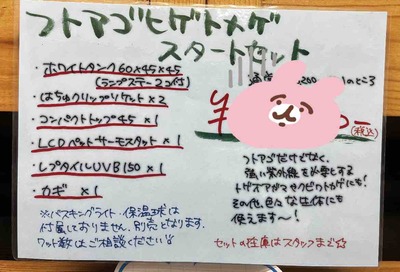 フトアゴヒゲトカゲ
スタートセット
・ホワイトタンク60×45×45
(ランプステー2コ付)
・はちゅクリップソケット×2
・コンパクトトップ45 ×1
・LCDペットサーモスタット ×1
・レプタイルUVB150 ×1
・カギ ×1
のところ
¥
(税込)
フトアゴだけでなく、
強い紫外線を必要とする
トゲオアガマやクビワトカゲにも!
その他、色々な生体にも
使えます〜!
※バスキングライト・保温球は
付属しておりません。別売となります。
ワット数はご相談ください
セットの在庫はスタッフまで☆